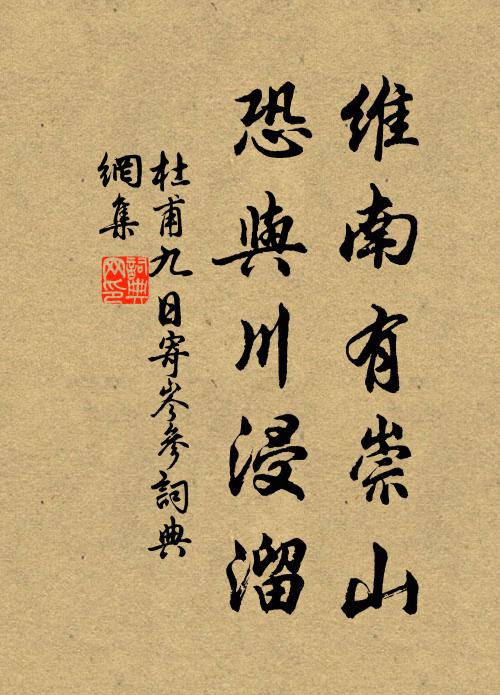 維南有崇山
恐與川浸溜
杜甫九日寄岑參詞典
網集
詞典網印